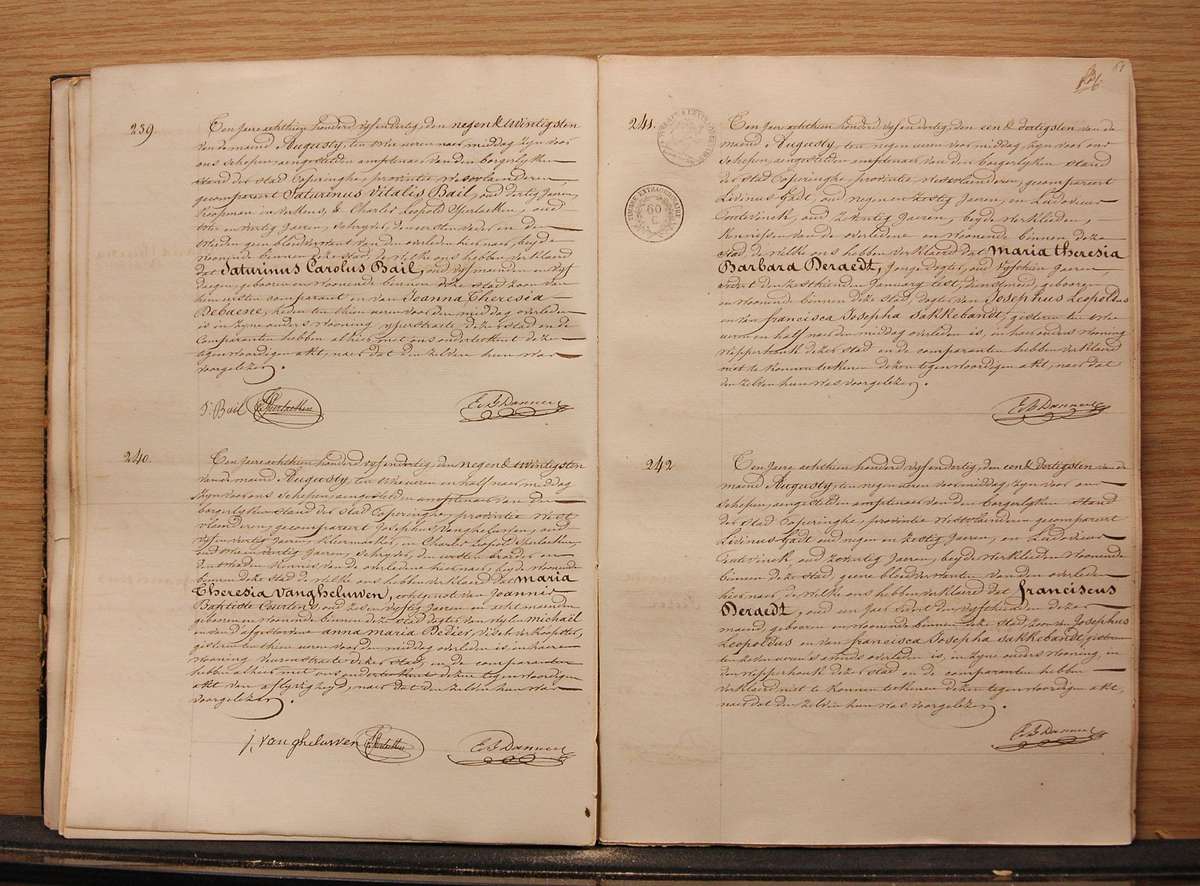 239.
Ten jaere achtthien honderd vyf en dertig, den negen & twintigsten
van de maend Augusty, ten vier uren naer middag zyn voor
ons schepen, aengestelden amptenaer van den borgerlyken
stand der stad Poperinghe, provintie Westvlaenderen,
gecompareert Saturinus Vitalis Bail, oud dertig Jaeren,
koopman in & Charles Leopold Sperlaeken, oud
en veertig Jaeren, schryver, den eersten vader en de
tweeden geen bloedverwant van den overleden hier naer, beyde
woonende binnen deze stad, de welke ons hebben verklaerd
dat Saturinus Carolus Bail, oud vyf maenden en vyf
dagen, geboren en woonende binnen deze stad zoon van
den eersten comparant en van Joanna Theresia
Debaene, heden ten thien uren voor den middag overleden
is in zyne ouders wooning yperstraete dezer stad en de
Comparanten hebben alhier met ons onderteekent dezen
tegenwoordigen akt, naer dat den zelven hun was
voorgelezen.
S. Bail
240.
Ten jaere achtthien honderd vyf en dertig, den negen & twintigsten
van de maend Augusty, ten vier uren en half naer middag
zyn voor ons schepen, aengestelden amptenaer van den
borgerlyken stand der stad Poperinghe, provintie West
vlaenderen, gecompareert Josephus Vangheluwen, oud
vyf en veertig Jaeren, kleermaeker, en Charles Leopold Sperlaeken,
oud en veertig Jaeren, schryver, de eersten broeder en
den tweeden kennis van de overledene hier naer, beyde woonende
binnen deze stad, de welke ons hebben verklaerd dat maria
Theresia Vangheluwen, echtgenote van Joannes
Baptiste Courten, oud zeven en vyftig Jaeren en acht maenden
geboren en woonende binnen deze stad dogter van wylen michaël
en van d'afgestorvene anna maria Dedier,
gisteren ten thien uren voor den middag overleden is in haere
wooning dezer stad, en de comparanten
hebben alhier met ons onderteekent dezen tegenwoordigen
akt van aflyvigheyd, naer dat den zelven hun was
voorgelezen.
j. vangheluwen
241.
Ten jaere achtthien honderd vyf en dertig, den een & dertigsten van de
maend Augusty, ten negen uren voor middag, zyn voor ons
schepen, aengestelden amptenaer van den borgerlyken stand
der stad Poperinghe, provintie Westvlaenderen, gecompareert
Livinus Gadt, oud negen en zestig Jaeren, en Ludovicus
oud Jaeren, beyde werklieden,
kennissen van de overledene en woonende binnen deze
stad, de welke ons hebben verklaerd dat maria theresia
Barbara Deraedt, jonge dogter, oud vyfthien Jaeren,
sedert den zesthienden January lest, geboren
en woonende binnen deze stad, dogter van Josephus Leopoldus
en van francisca Josepha Sakkebandt, gisteren ten vier
uren en half naer den middag overleden is, in haer ouders wooning
dezer stad en de comparanten hebben verklaerd
niet te konnen teekenen dezen tegenwoordigen akt, naer dat
den zelven hun was voorgelezen.
242
Ten Jaere achtthien honderd vyf en dertig, den een & dertigsten van de
maend Augusty, ten negen uren voor middag, zyn voor ons
schepen, aengestelden amptenaer van den borgerlyken stand
der stad Poperinghe, provintie Westvlaenderen gecompareert
Livinus Gadt oud negen en zestig Jaeren, en Ludovicus
oud Jaeren, beyde werklieden woonende
binnen deze stad, geene bloedverwanten van den overleden
hier naer, de welke ons hebben verklaerd dat franciscus
Deraedt, oud een jaer sedert den dezer
maend, geboren en woonende binnen deze stad, zoon van Josephus
Leopoldus en van francisca Josepha Sakkebandt, gisteren
ten zeven uren s'avonds overleden is, in zyne ouders wooning, in
dezer stad en de comparanten hebben
verklaerd niet te konnen teekenen dezen tegenwoordigen akt,
naer dat den zelven hun was voorgelezen.
60